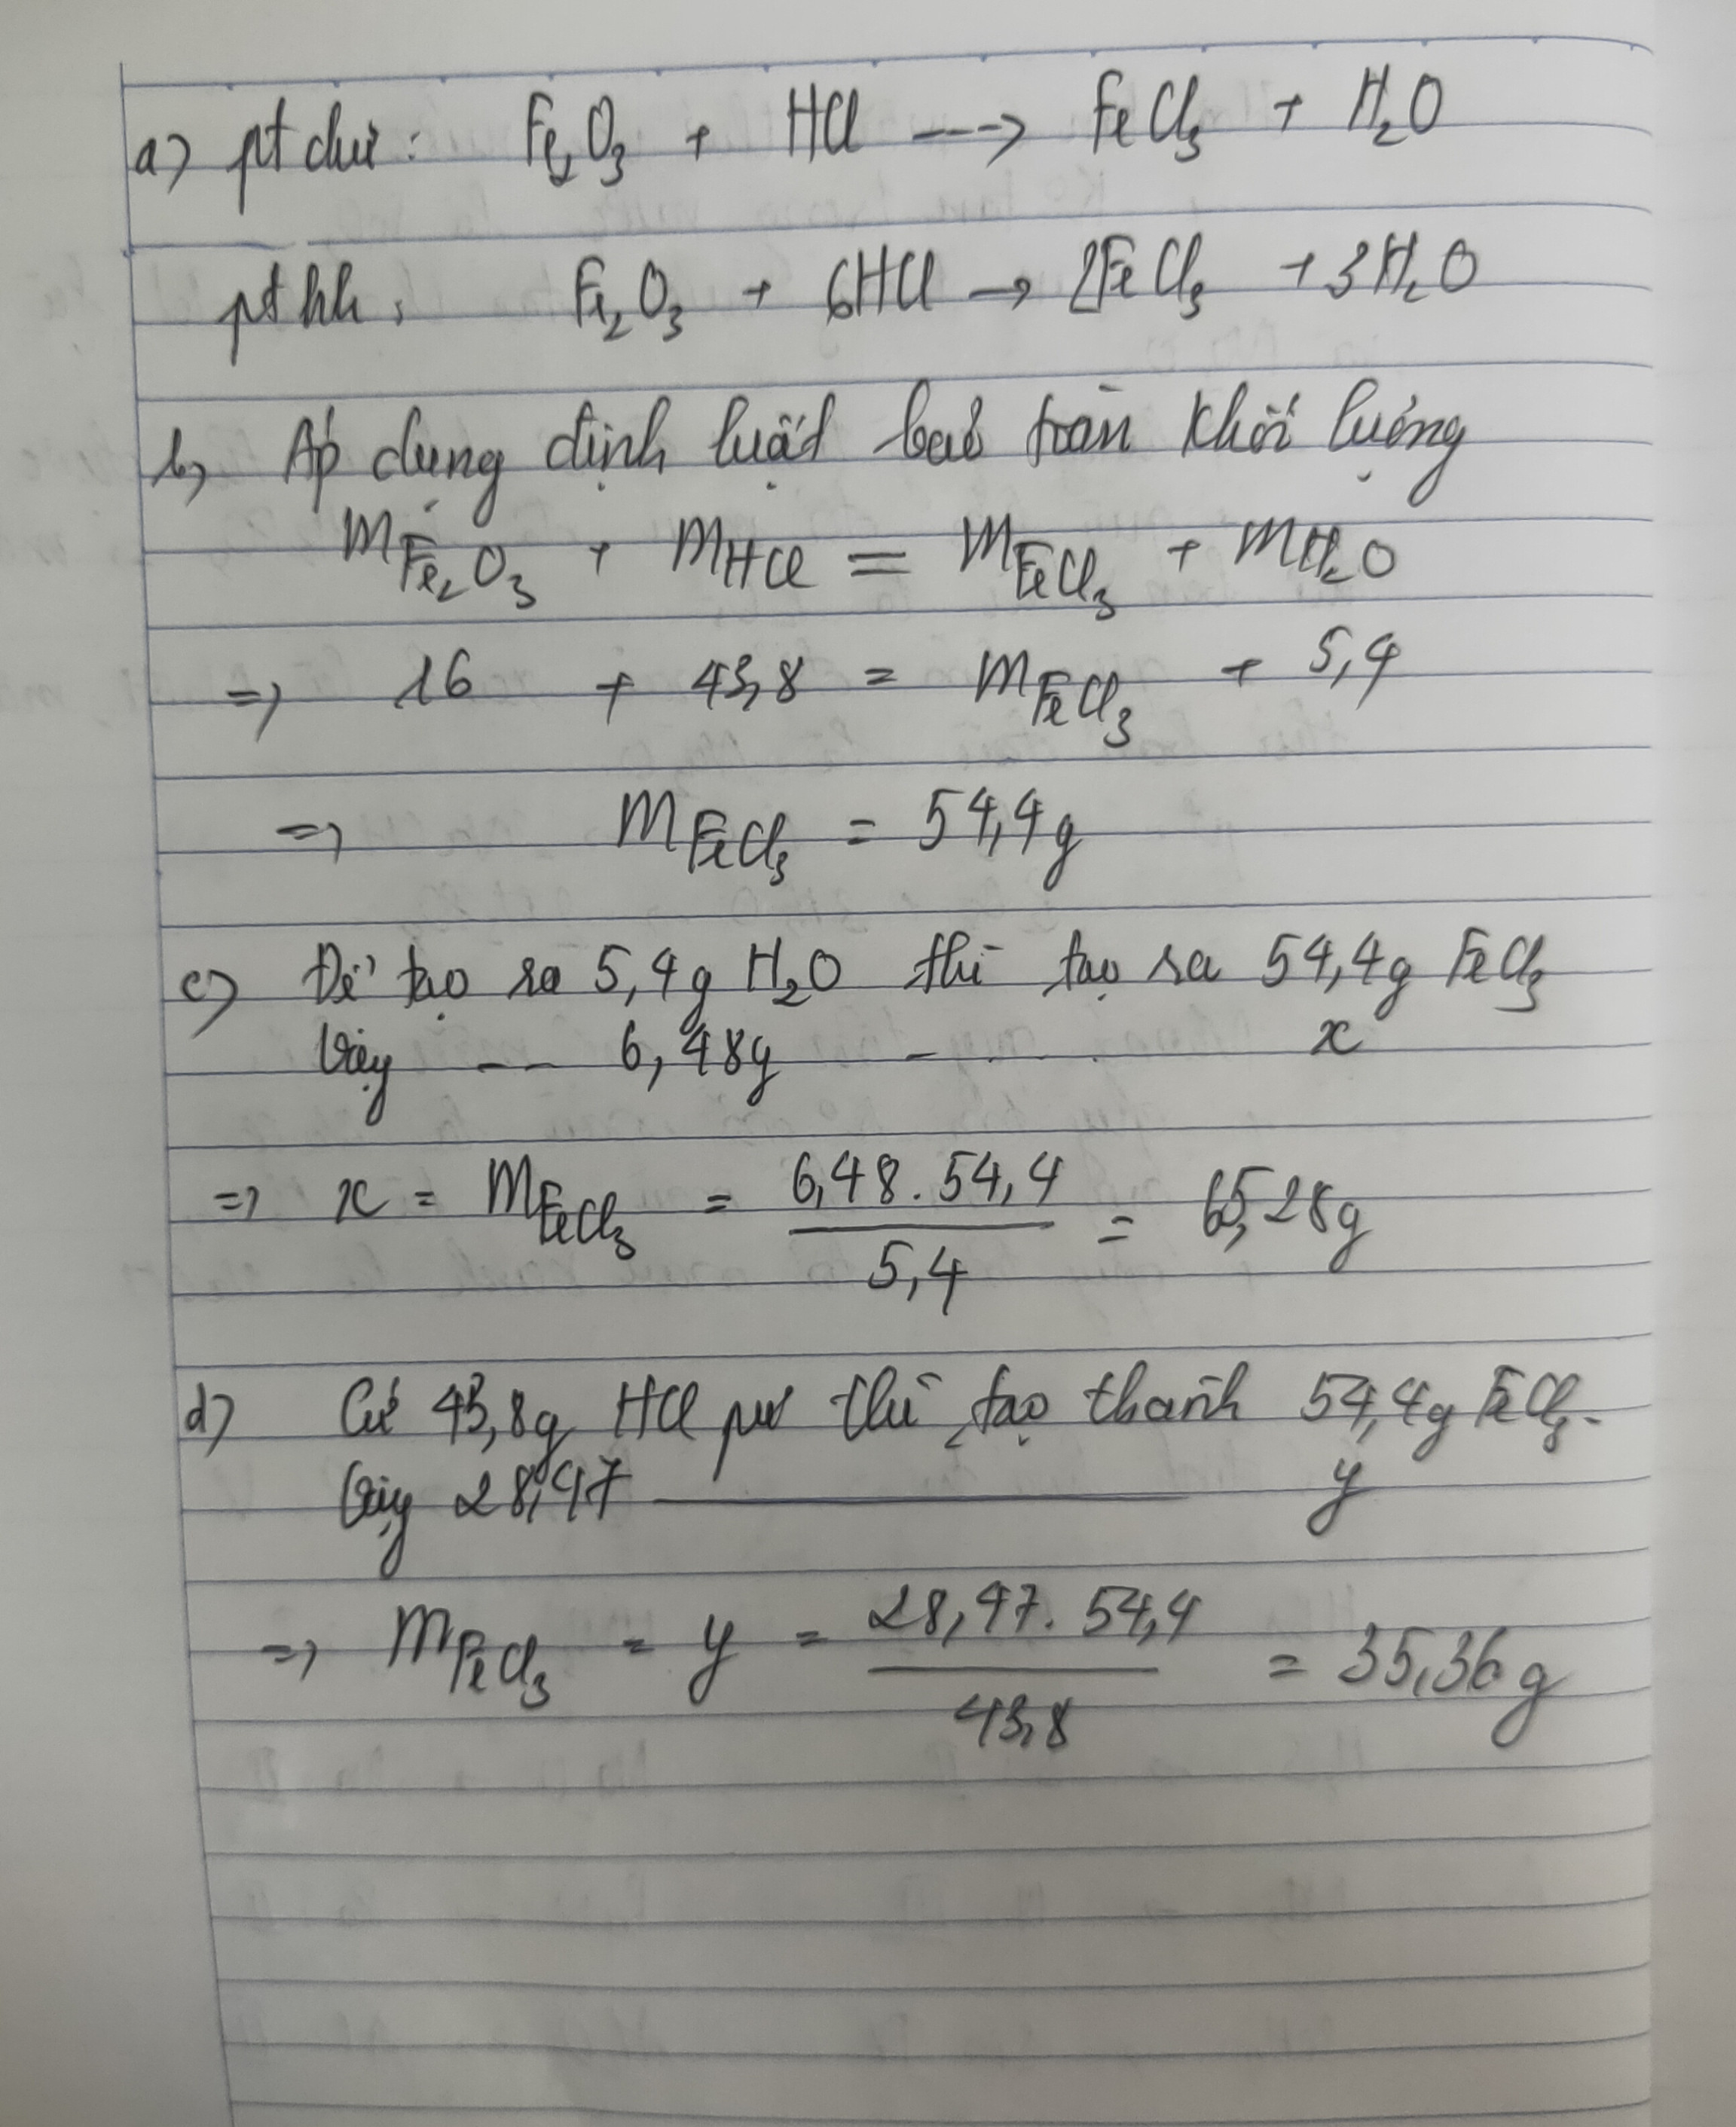 a) pt chữ: Fe₂O₃ + HCl ---> FeCl₃ + H₂O
pthh: Fe₂O₃ + 6HCl → 2FeCl₃ + 3H₂O
b, Áp dụng định luật bảo toàn khối lượng
m Fe₂O₃ + m HCl = m FeCl₃ + m H₂O
=> 16 + 43,8 = m FeCl₃ + 5,4
=> m FeCl₃ = 54,4g
c) Để tạo ra 5,4g H₂O thì tạo ra 54,4g FeCl₃
Vậy -- 6,48g - . . x
=> x = m FeCl₃ = 6,48 . 54,4 / 5,4 = 65,28g
d) Cứ 43,8g HCl pư thì tạo thành 54,4g FeCl₃.
Vậy 28,47 ——— y
=> m FeCl₃ = y = 28,47 . 54,4 / 43,8 = 35,36g